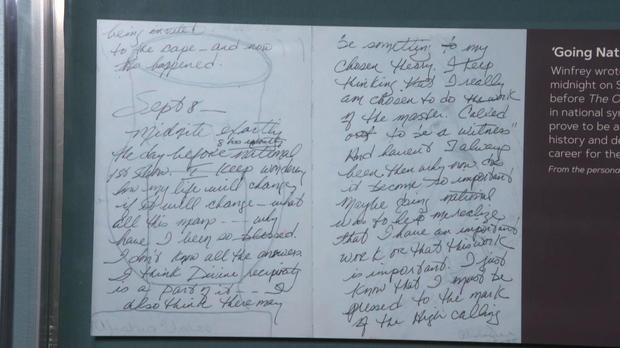 being invited
to the cape - and now
this happened.
Sept 8 -
Midnite exactly
8 hrs exactly
the day before national
1st show. I keep wondering
how my life will change
if it will change - what
all this means - - - why
have I been so blessed.
I don't know all the answers.
I think Divine reciprocity
is a part of it - - - I
also think there may
be something to my
Chosen theory. I keep
thinking that I really
am chosen to do the work
of the master. Called
out to be a witness"
And haven't I always
been then why now does
it become so important
Maybe going national
was to let me realize
that I have an important
work or that this work
is important. I just
know that I must be
pressed to the mark
of the High calling
'Going Nat
Winfrey wrot
midnight on S
before The O
in national syn
prove to be a
history and de
career for the
From the persona